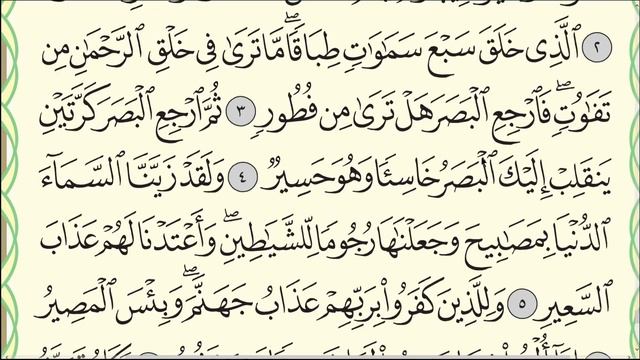 ٢ ٱلَّذِى خَلَقَ سَبْعَ سَمَٰوَٰتٍ طِبَاقًا ۖ مَّا تَرَىٰ فِى خَلْقِ ٱلرَّحْمَٰنِ مِن
تَفَٰوُتٍ ۖ فَٱرْجِعِ ٱلْبَصَرَ هَلْ تَرَىٰ مِن فُطُورٍ ٣ ثُمَّ ٱرْجِعِ ٱلْبَصَرَ كَرَّتَيْنِ
يَنقَلِبْ إِلَيْكَ ٱلْبَصَرُ خَاسِئًا وَهُوَ حَسِيرٌ ٤ وَلَقَدْ زَيَّنَّا ٱلسَّمَآءَ
ٱلدُّنْيَا بِمَصَٰبِيحَ وَجَعَلْنَٰهَا رُجُومًا لِّلشَّيَٰطِينِ ۖ وَأَعْتَدْنَا لَهُمْ عَذَابَ
ٱلسَّعِيرِ ٥ وَلِلَّذِينَ كَفَرُوا۟ بِرَبِّهِمْ عَذَابُ جَهَنَّمَ ۖ وَبِئْسَ ٱلْمَصِيرُ